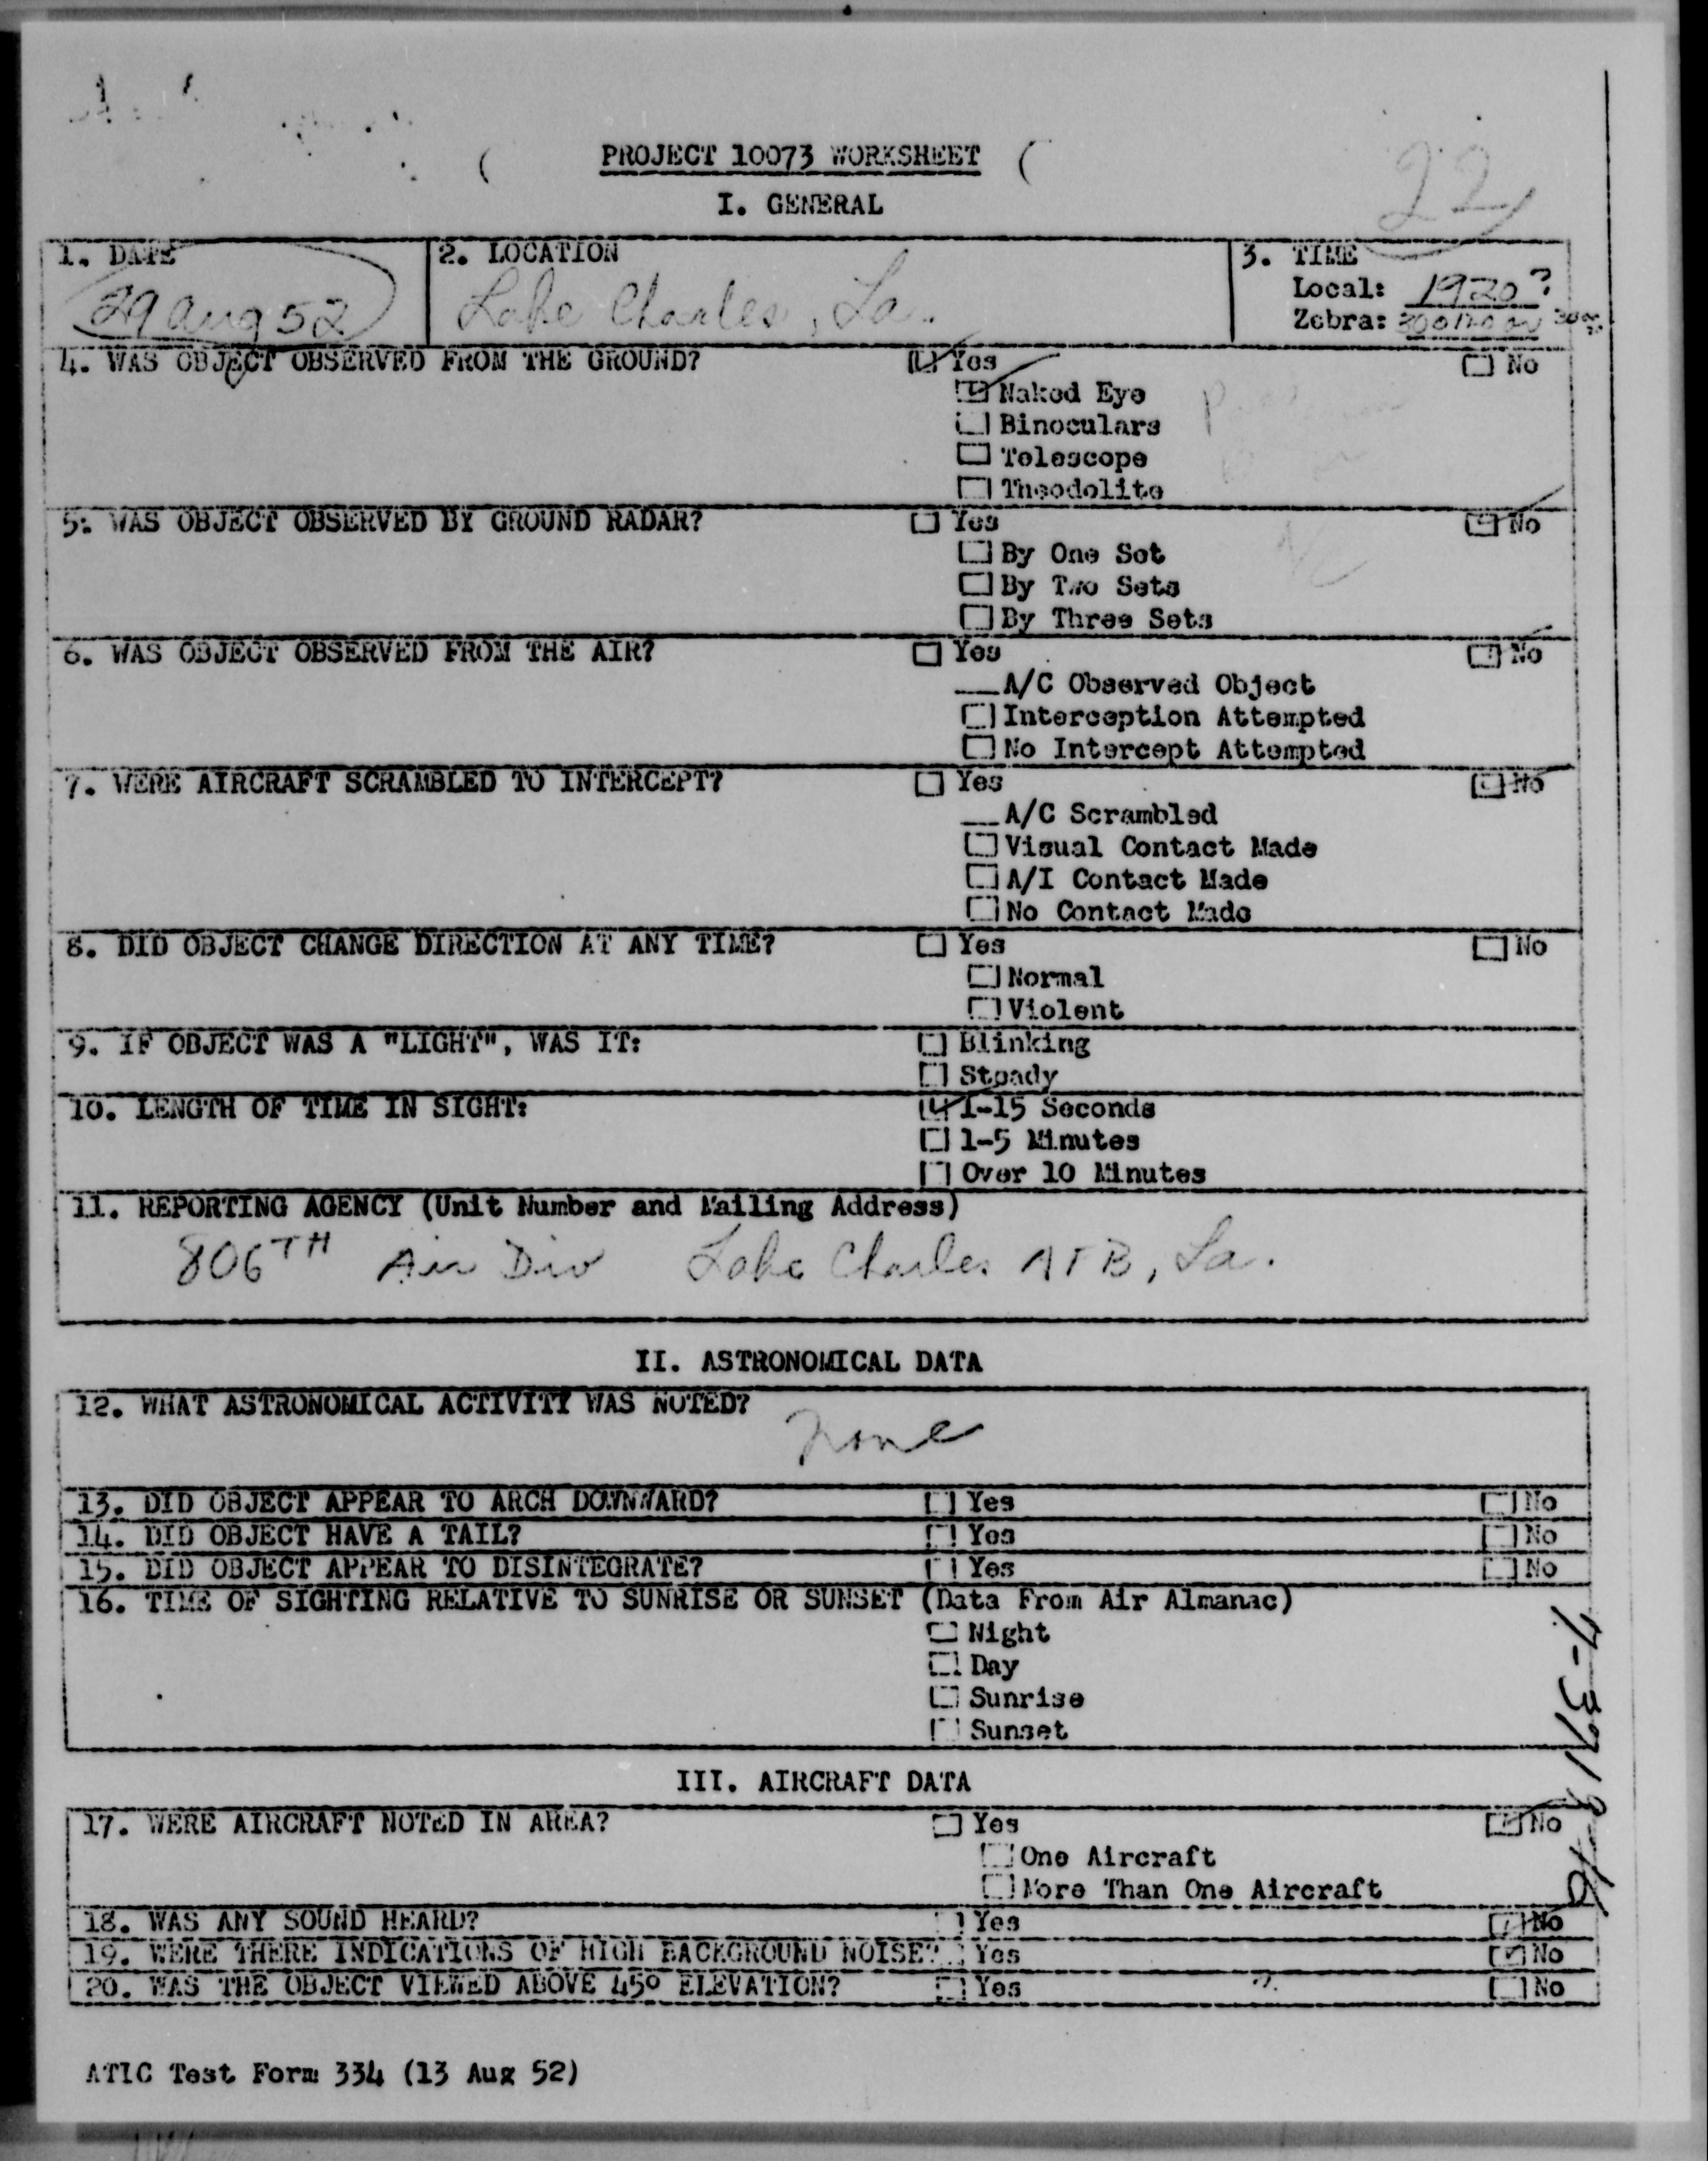 22
PROJECT 10073 WORKSHEET
I. GENERAL
1. DATE
29 Aug 52
2. LOCATION
Lake Charles, La.
3. TIME
Local: 1920?
Zebra:
4. WAS OBJECT OBSERVED FROM THE GROUND?
Yes
No
Naked Eye
Binoculars
Telescope
Theodolite
5. WAS OBJECT OBSERVED BY GROUND RADAR?
Yes
No
By One Set
By Two Sets
By Three Sets
6. WAS OBJECT OBSERVED FROM THE AIR?
Yes
No
A/C Observed Object
Interception Attempted
No Intercept Attempted
7. WERE AIRCRAFT SCRAMBLED TO INTERCEPT?
Yes
No
A/C Scrambled
Visual Contact Made
A/I Contact Made
No Contact Made
8. DID OBJECT CHANGE DIRECTION AT ANY TIME?
Yes
No
Normal
Violent
9. IF OBJECT WAS A "LIGHT", WAS IT:
Blinking
Steady
10. LENGTH OF TIME IN SIGHT:
1-15 Seconds
1-5 Minutes
Over 10 Minutes
11. REPORTING AGENCY (Unit Number and Mailing Address)
806TH Air Div Lake Charles AFB, La.
II. ASTRONOMICAL DATA
12. WHAT ASTRONOMICAL ACTIVITY WAS NOTED?
None
13. DID OBJECT APPEAR TO ARCH DOWNWARD? Yes No
14. DID OBJECT HAVE A TAIL? Yes No
15. DID OBJECT APPEAR TO DISINTEGRATE? Yes No
16. TIME OF SIGHTING RELATIVE TO SUNRISE OR SUNSET (Data From Air Almanac)
Night
Day
Sunrise
Sunset
III. AIRCRAFT DATA
17. WERE AIRCRAFT NOTED IN AREA? Yes No
One Aircraft
More Than One Aircraft
18. WAS ANY SOUND HEARD? Yes No
19. WERE THERE INDICATIONS OF HIGH BACKGROUND NOISE? Yes No
20. WAS THE OBJECT VIEWED ABOVE 45° ELEVATION? Yes ? No
ATIC Test Form 334 (13 Aug 52)